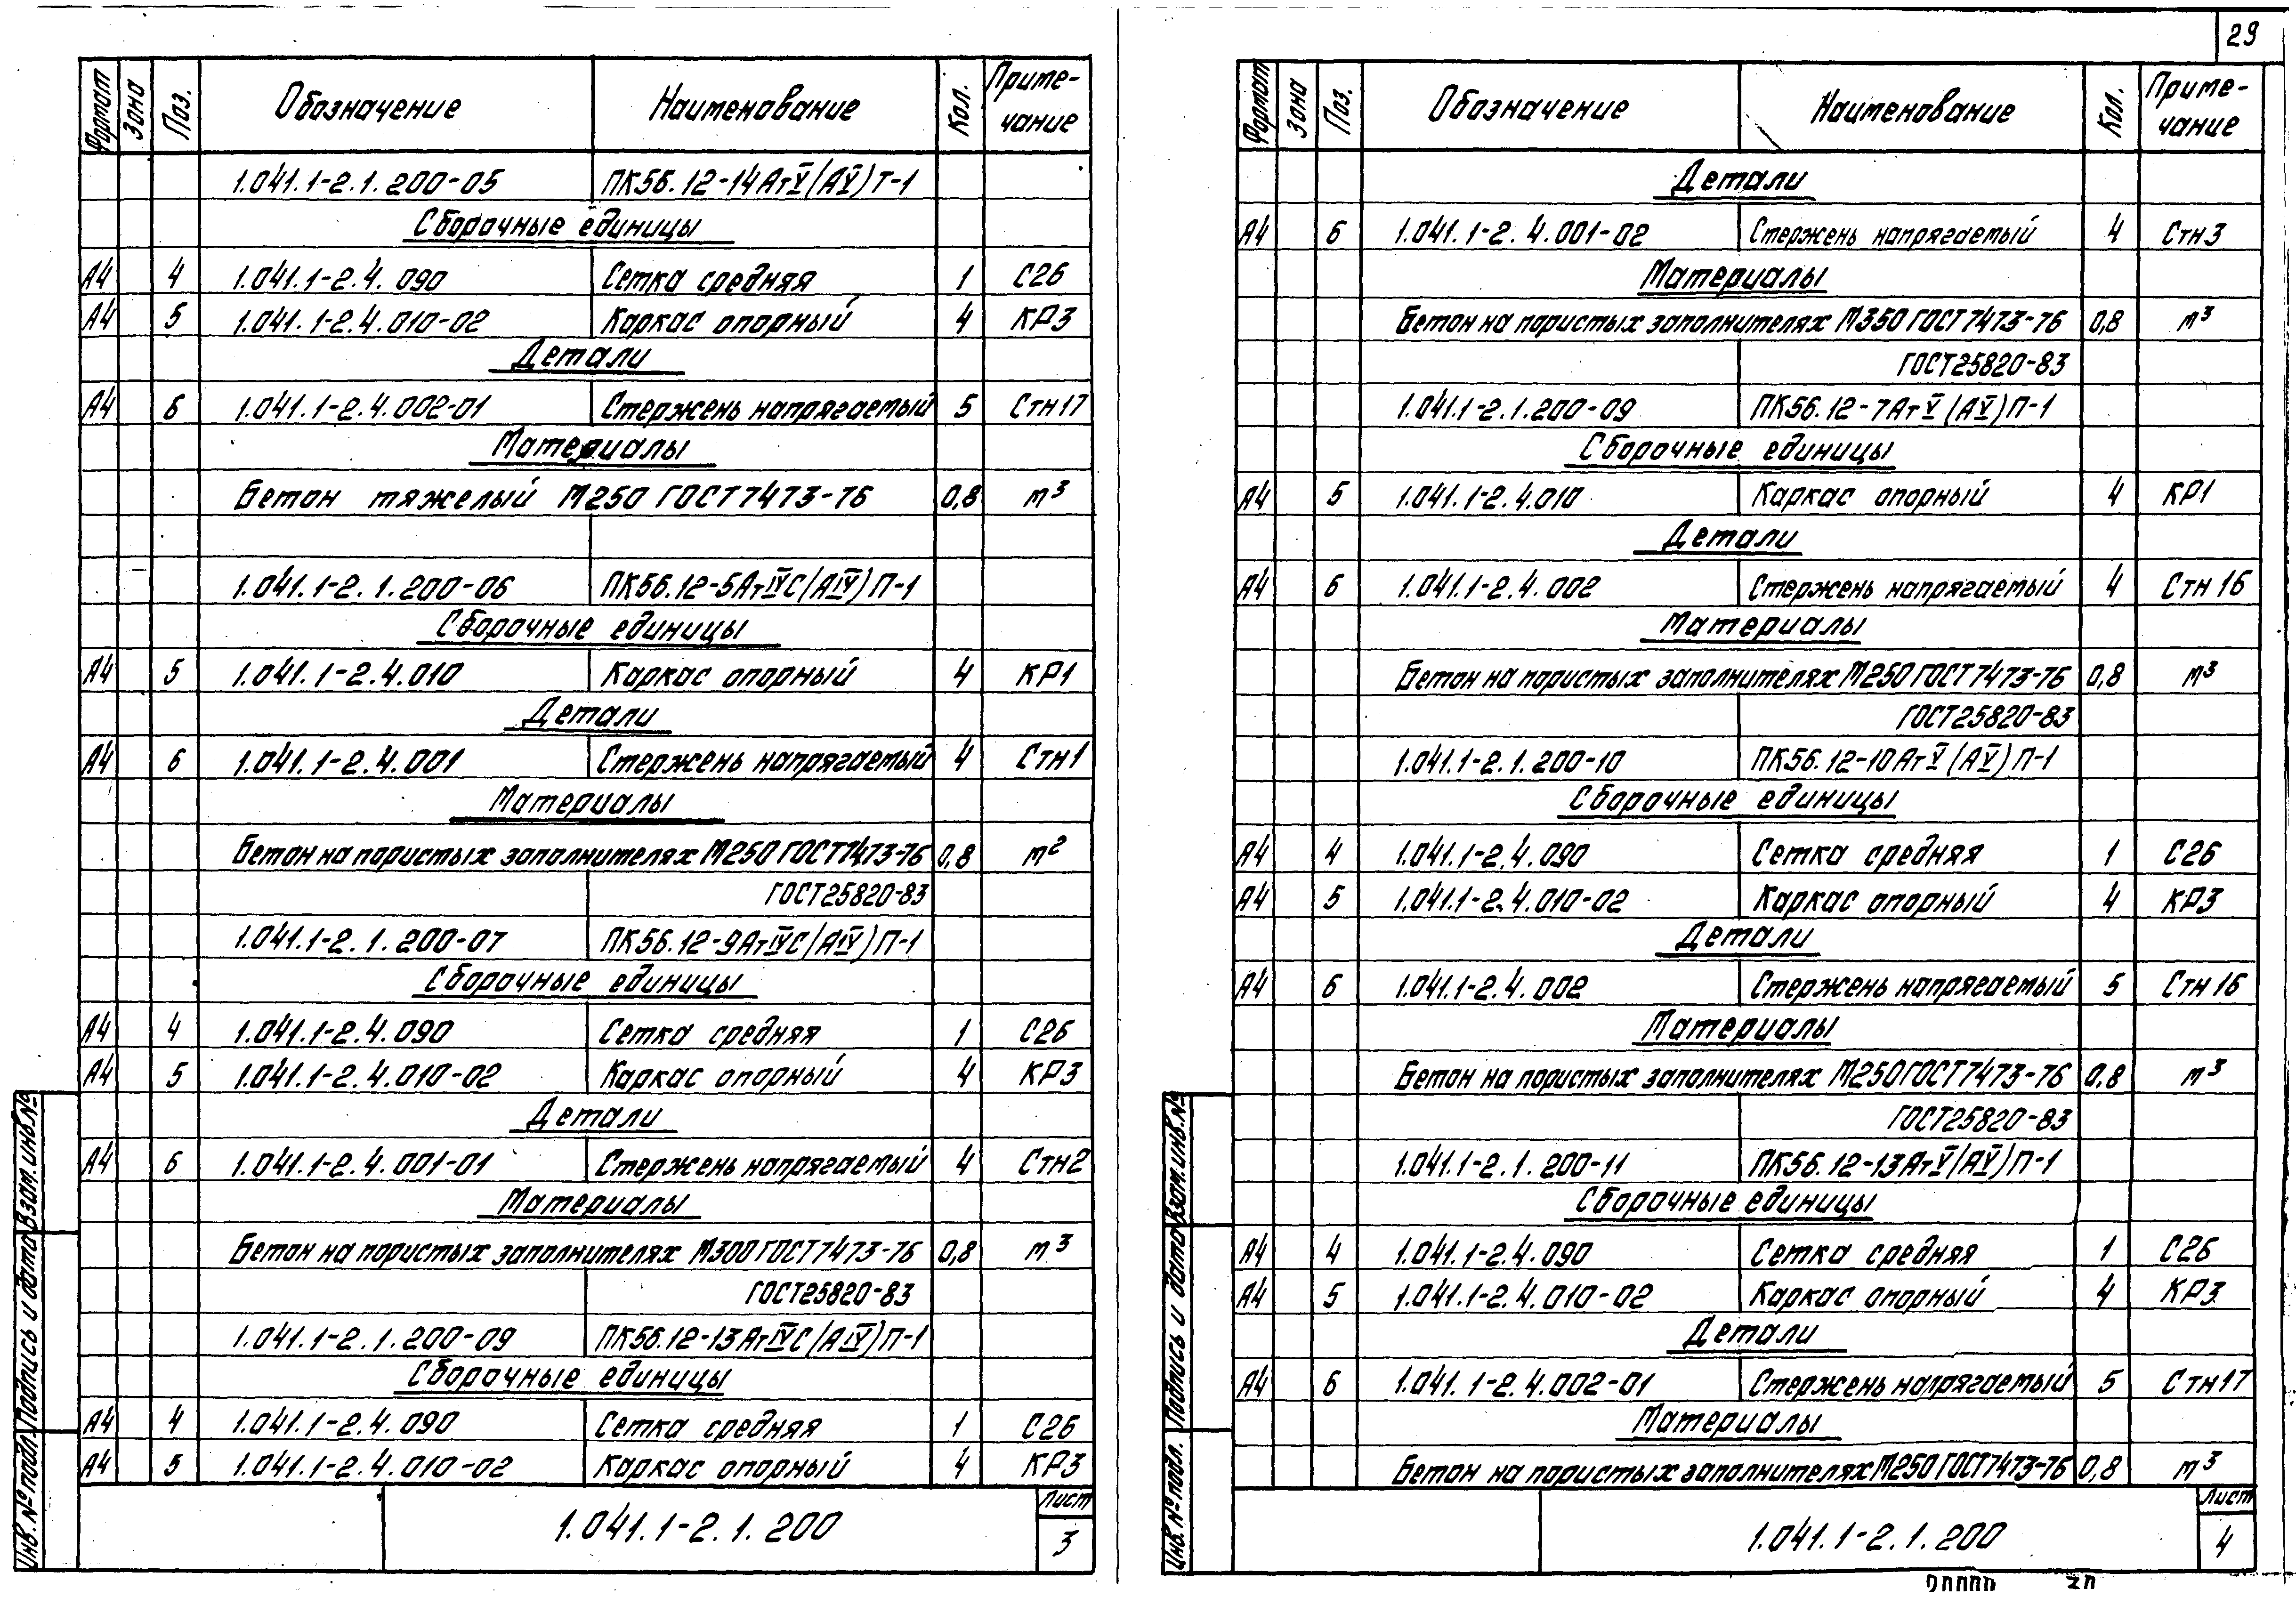 29
Формат Зона Поз. Обозначение Наименование Кол. Приме-
чание
1.041.1-2.1.200-05 ПК56.12-14АтV(АV)Т-1
Сборочные единицы
А4 4 1.041.1-2.4.090 Сетка средняя 1 С26
А4 5 1.041.1-2.4.010-02 Каркас опорный 4 КР3
Детали
А4 6 1.041.1-2.4.002-01 Стержень напрягаемый 5 Стн17
Материалы
Бетон тяжелый М250 ГОСТ7473-76 0,8 м³
1.041.1-2.1.200-06 ПК56.12-5АтIVС(АIV)П-1
Сборочные единицы
А4 5 1.041.1-2.4.010 Каркас опорный 4 КР1
Детали
А4 6 1.041.1-2.4.001 Стержень напрягаемый 4 Стн1
Материалы
Бетон на пористых заполнителях М250 ГОСТ7473-76 0,8 м²
ГОСТ25820-83
1.041.1-2.1.200-07 ПК56.12-9АтIVС(АIV)П-1
Сборочные единицы
А4 4 1.041.1-2.4.090 Сетка средняя 1 С26
А4 5 1.041.1-2.4.010-02 Каркас опорный 4 КР3
Детали
А4 6 1.041.1-2.4.001-01 Стержень напрягаемый 4 Стн2
Материалы
Бетон на пористых заполнителях М300 ГОСТ7473-76 0,8 м³
ГОСТ25820-83
1.041.1-2.1.200-09 ПК56.12-13АтIVС(АIV)П-1
Сборочные единицы
А4 4 1.041.1-2.4.090 Сетка средняя 1 С26
А4 5 1.041.1-2.4.010-02 Каркас опорный 4 КР3
Инв. № подл. Подпись и дата Взам.инв.№
1.041.1-2.1.200
Лист
3
Формат Зона Поз. Обозначение Наименование Кол. Приме-
чание
Детали
А4 6 1.041.1-2.4.001-02 Стержень напрягаемый 4 Стн3
Материалы
Бетон на пористых заполнителях М350 ГОСТ7473-76 0,8 м³
ГОСТ25820-83
1.041.1-2.1.200-09 ПК56.12-7АтV(АV)П-1
Сборочные единицы
А4 5 1.041.1-2.4.010 Каркас опорный 4 КР1
Детали
А4 6 1.041.1-2.4.002 Стержень напрягаемый 4 Стн16
Материалы
Бетон на пористых заполнителях М250 ГОСТ7473-76 0,8 м³
ГОСТ25820-83
1.041.1-2.1.200-10 ПК56.12-10АтV(АV)П-1
Сборочные единицы
А4 4 1.041.1-2.4.090 Сетка средняя 1 С26
А4 5 1.041.1-2.4.010-02 Каркас опорный 4 КР3
Детали
А4 6 1.041.1-2.4.002 Стержень напрягаемый 5 Стн16
Материалы
Бетон на пористых заполнителях М250 ГОСТ7473-76 0,8 м³
ГОСТ25820-83
1.041.1-2.1.200-11 ПК56.12-13АтV(АV)П-1
Сборочные единицы
А4 4 1.041.1-2.4.090 Сетка средняя 1 С26
А4 5 1.041.1-2.4.010-02 Каркас опорный 4 КР3
Детали
А4 6 1.041.1-2.4.002-01 Стержень напрягаемый 5 Стн17
Материалы
Бетон на пористых заполнителях М250 ГОСТ7473-76 0,8 м³
Инв. № подл. Подпись и дата Взам.инв.№
1.041.1-2.1.200
Лист
4